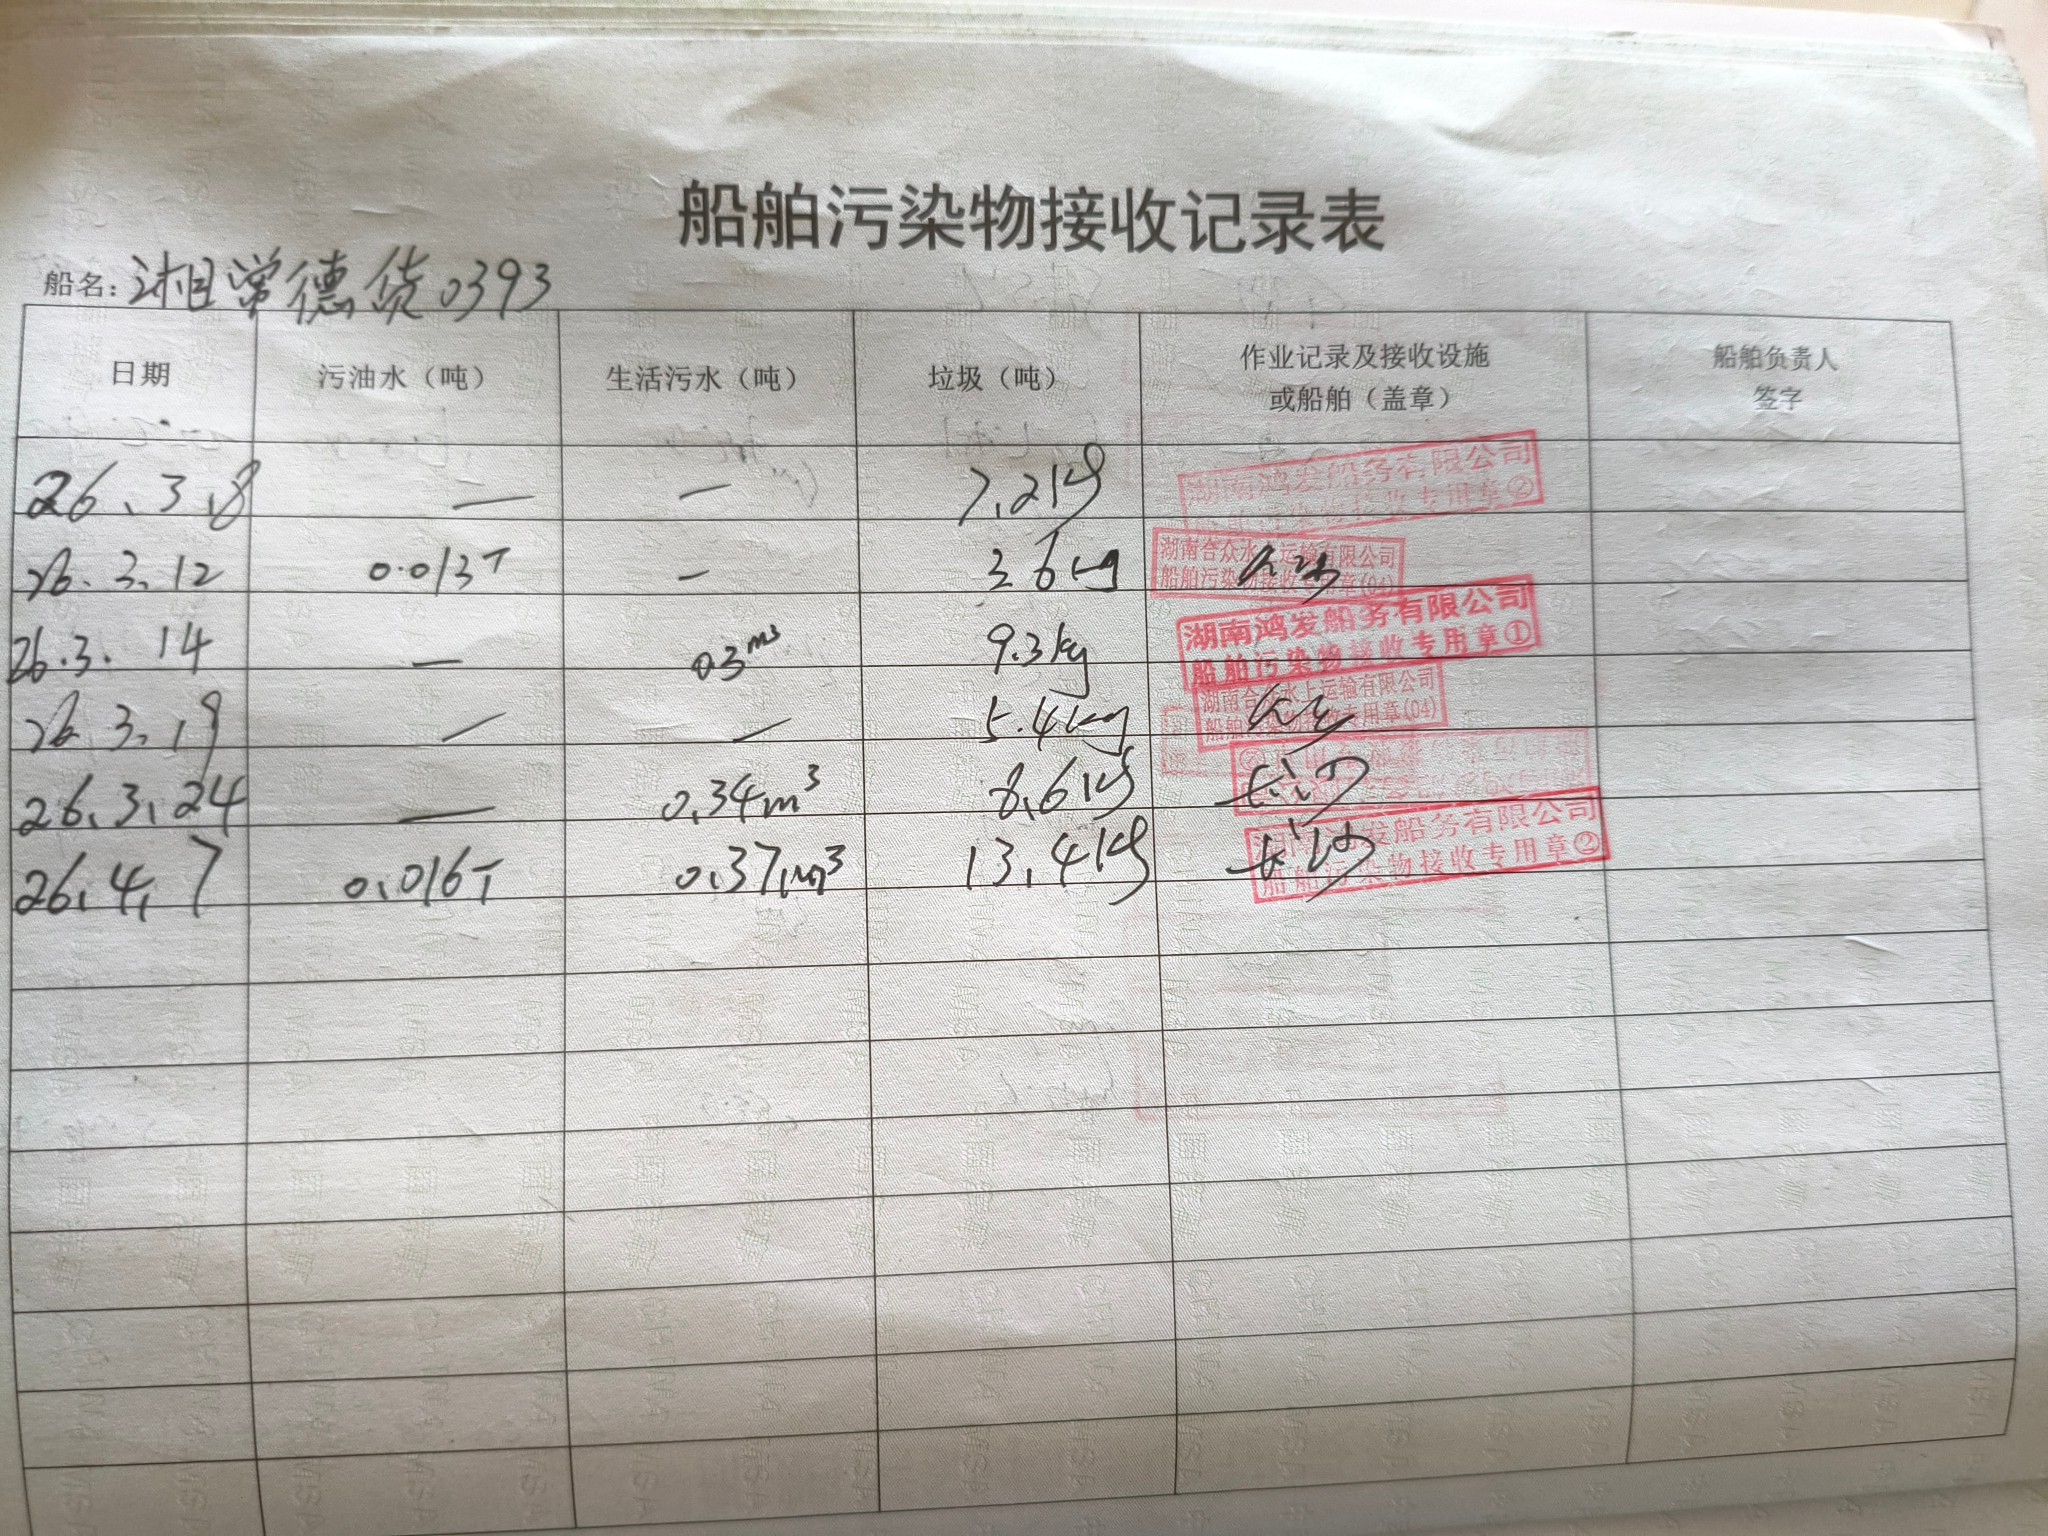 船舶污染物接收记录表
船名：湘常德货0393
日期 污油水（吨） 生活污水（吨） 垃圾（吨） 作业记录及接收设施或船舶（盖章） 船舶负责人签字
26.3.8 — — 7.2kg 湖南鸿发船务有限公司 船舶污染物接收专用章②
26.3.12 0.013T — 3.6kg 湖南合众水上运输有限公司 船舶污染物接收专用章(04)
26.3.14 — 03m³ 9.3kg 湖南鸿发船务有限公司 船舶污染物接收专用章①
26.3.19 — — 5.4kg 湖南合众水上运输有限公司 船舶污染物接收专用章(04)
26.3.24 — 0.34m³ 8.6kg 长沙
26.4.7 0.016T 0.37m³ 13.4kg 长沙 湖南鸿发船务有限公司 船舶污染物接收专用章②